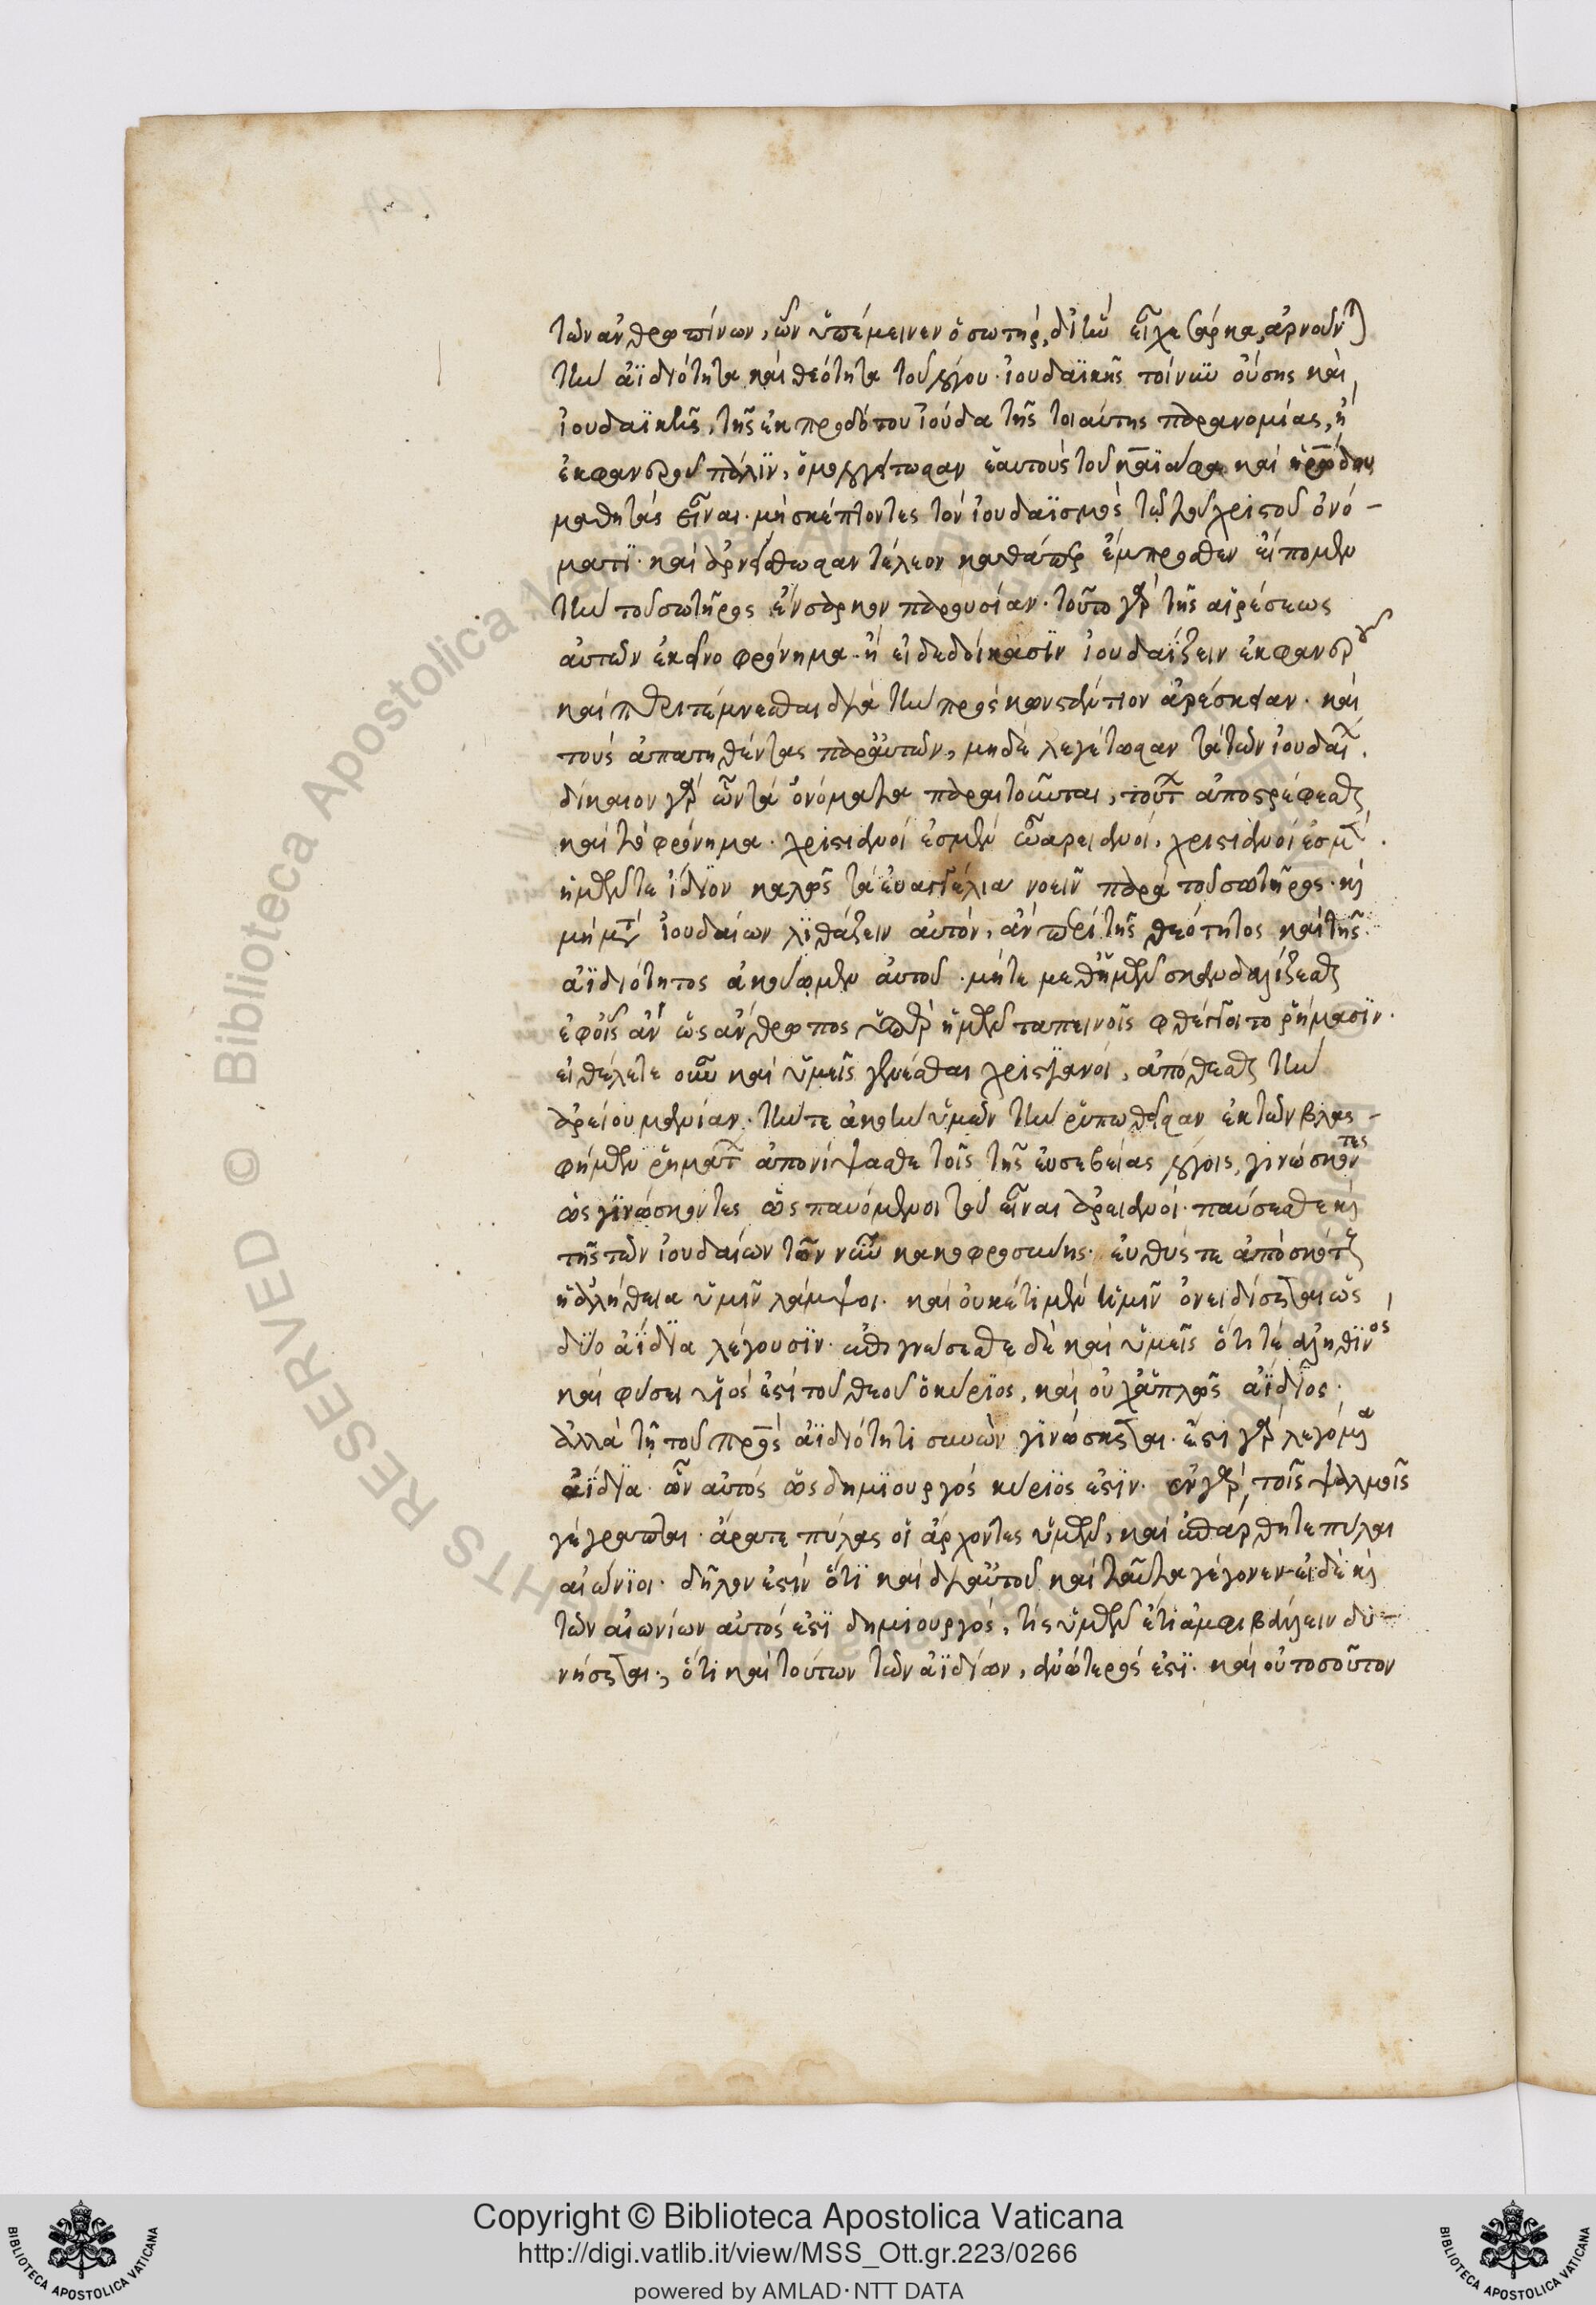 τῶν ἀνθρωπίνων, ὧν ὑπέμεινεν ὁ σωτὴρ, δι' ἣν εἶχε σάρκα, ἀρνοῦνται
τὴν ἀϊδιότητα καὶ θεότητα τοῦ λόγου. ἰουδαϊκῆς τοίνυν οὔσης καὶ
ἰουδαϊκῆς, τῆς ἐκ προδότου ἰούδα τῆς τοιαύτης παρανομίας, ἢ
ἐκφανεροῦ πάλϊν, ὁμολογείτωσαν ἑαυτοὺς τοῦ καϊάφα καὶ ἡρώδου
μαθητὰς εἶναι. μὴ σκέπτοντες τὸν ἰουδαϊσμὸς τῷ τοῦ χριστοῦ ὀνό-
ματϊ. καὶ ἀρνείσθωσαν τέλεον καθάπερ ἔμπροθεν εἴπομεν
τὴν τοῦ σωτῆρος ἔνσαρκον παρουσίαν. τοῦτο γὰρ τῆς αἱρέσεως
αὐτῶν ἐκεῖνο φρόνημα. ἢ εἰ δεδοίκασϊν ἰουδαΐζειν ἐκφανεροῦ
καὶ περιτέμνεσθαι διὰ τὴν πρὸς κωνστάντιον ἀρέσκειαν. καὶ
τοὺς ἀπατηθέντας παρ' αὐτῶν, μηδὲ λεγέτωσαν τὰ τῶν ἰουδαίων.
δίκαιον γὰρ ὧν τὰ ὀνόματα παραιτοῦνται, τούτων ἀποστρέφεσθαι
καὶ τὸ φρόνημα. χριστιανοί ἐσμεν ὦ αρειανοί, χριστιανοί ἐσμεν.
ἡμῶν τε ἴδϊον καλῶς τὰ ἐυαγγέλια νοεῖν παρὰ τοῦ σωτῆρος. καὶ
μὴ μετὰ ἰουδαίων λϊθάζειν αὐτόν, ἂν περὶ τῆς θεότητος καὶ τῆς
ἀϊδιότητος ἀκούωμεν αὐτοῦ. μήτε μεθ' ὑμῶν σκανδαλίζεσθαι
ἐφ' οἷς ἂν ὡς ἄνθρωπος ὑπὲρ ἡμῶν ταπεινοῖς φθέγγοιτο ῥήμασϊν.
εἰ θέλετε οὖν καὶ ὑμεῖς γενέσθαι χριστϊανοί, ἀπόθεσθε τὴν
ἀρείου μανίαν. τήν τε ἀκοὴν ὑμῶν τὴν ῥυπωθεῖσαν ἐκ τῶν βλασ-
φήμων ῥημάτων ἀπονίψασθε τοῖς τῆς ἐυσεβείας λόγοις, γινώσκοντες
ὡς γϊνώσκοντες ὡς παυόμενοι τοῦ εἶναι ἀρειανοί. παύσεσθε καὶ
τῆς τῶν ἰουδαίων τῶν νῦν κακοφροσύνης. εὐθύς τε ἀπὸ σκότους
ἡ ἀλήθεια ὑμῖν λάμψοι. καὶ οὐκέτι μὲν ἡμῖν ὀνειδίσεται ὡς
δύο ἀΐδϊα λέγουσϊν. ἐπιγνώσεσθε δὲ καὶ ὑμεῖς ὅτι τε ἀληθϊνὸς
καὶ φύσει υἱός ἐστϊ τοῦ θεοῦ ὁ κύρϊος, καὶ οὐχ ἁπλῶς ἀΐδϊος.
ἀλλὰ τῇ τοῦ πατρὸς ἀϊδιότητι συνὼν γϊνώσκεται. ἔστι γὰρ λεγόμενα
ἀΐδϊα. ὧν αὐτὸς ὡς δημϊουργός κύρϊός ἐστϊν. ἐν γὰρ τοῖς ψαλμοῖς
γέγραπται. ἄρατε πύλας οἱ ἄρχοντες ὑμῶν, καὶ ἐπάρθητε πύλαι
αἰώνϊοι. δῆλον ἐστὶν ὅτϊ καὶ δι' αὐτοῦ καὶ ταῦτα γέγονεν. εἰ δὲ καὶ
τῶν αἰωνίων αὐτός ἐστϊ δημιουργός, τίς ὑμῶν ἔτι ἀμφιβάλλειν δυ-
νήσεται, ὅτι καὶ τούτων τῶν ἀϊδίων, ἀνώτερός ἐστϊ. καὶ οὐ τοσοῦτον
Copyright © Biblioteca Apostolica Vaticana
http://digi.vatlib.it/view/MSS_Ott.gr.223/0266
powered by AMLAD·NTT DATA